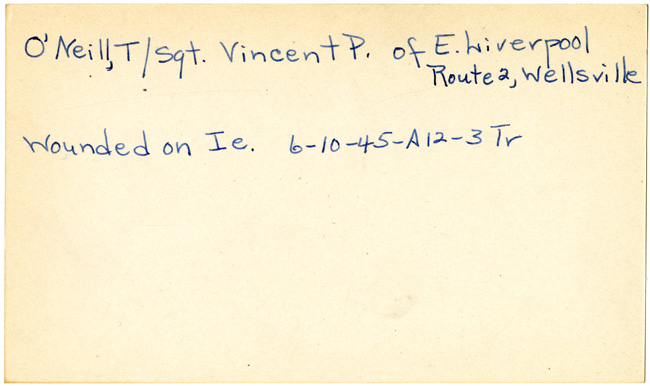 O'Neill, T/Sgt. Vincent P. of E. Liverpool
Route 2, Wellsville
Wounded on Ie. 6-10-45-A12-3 Tr